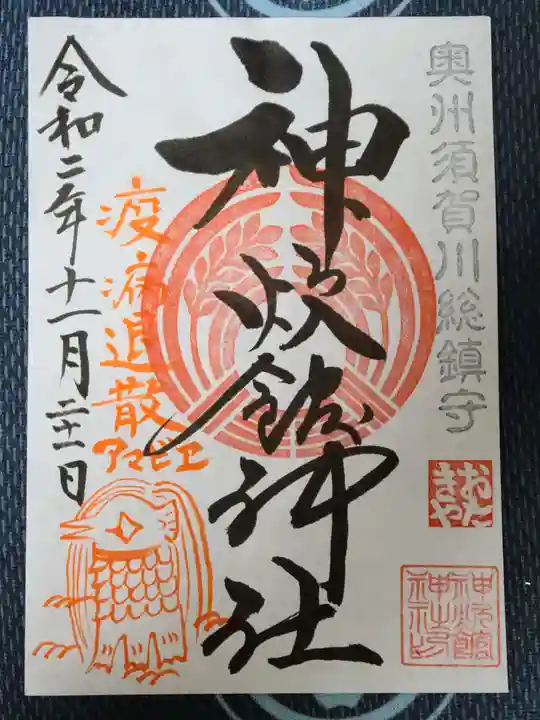 奥州須賀川総鎮守
神炊館神社
疫病退散
アマビエ
令和二年十一月二十一日
おたきや
神炊館
神社印